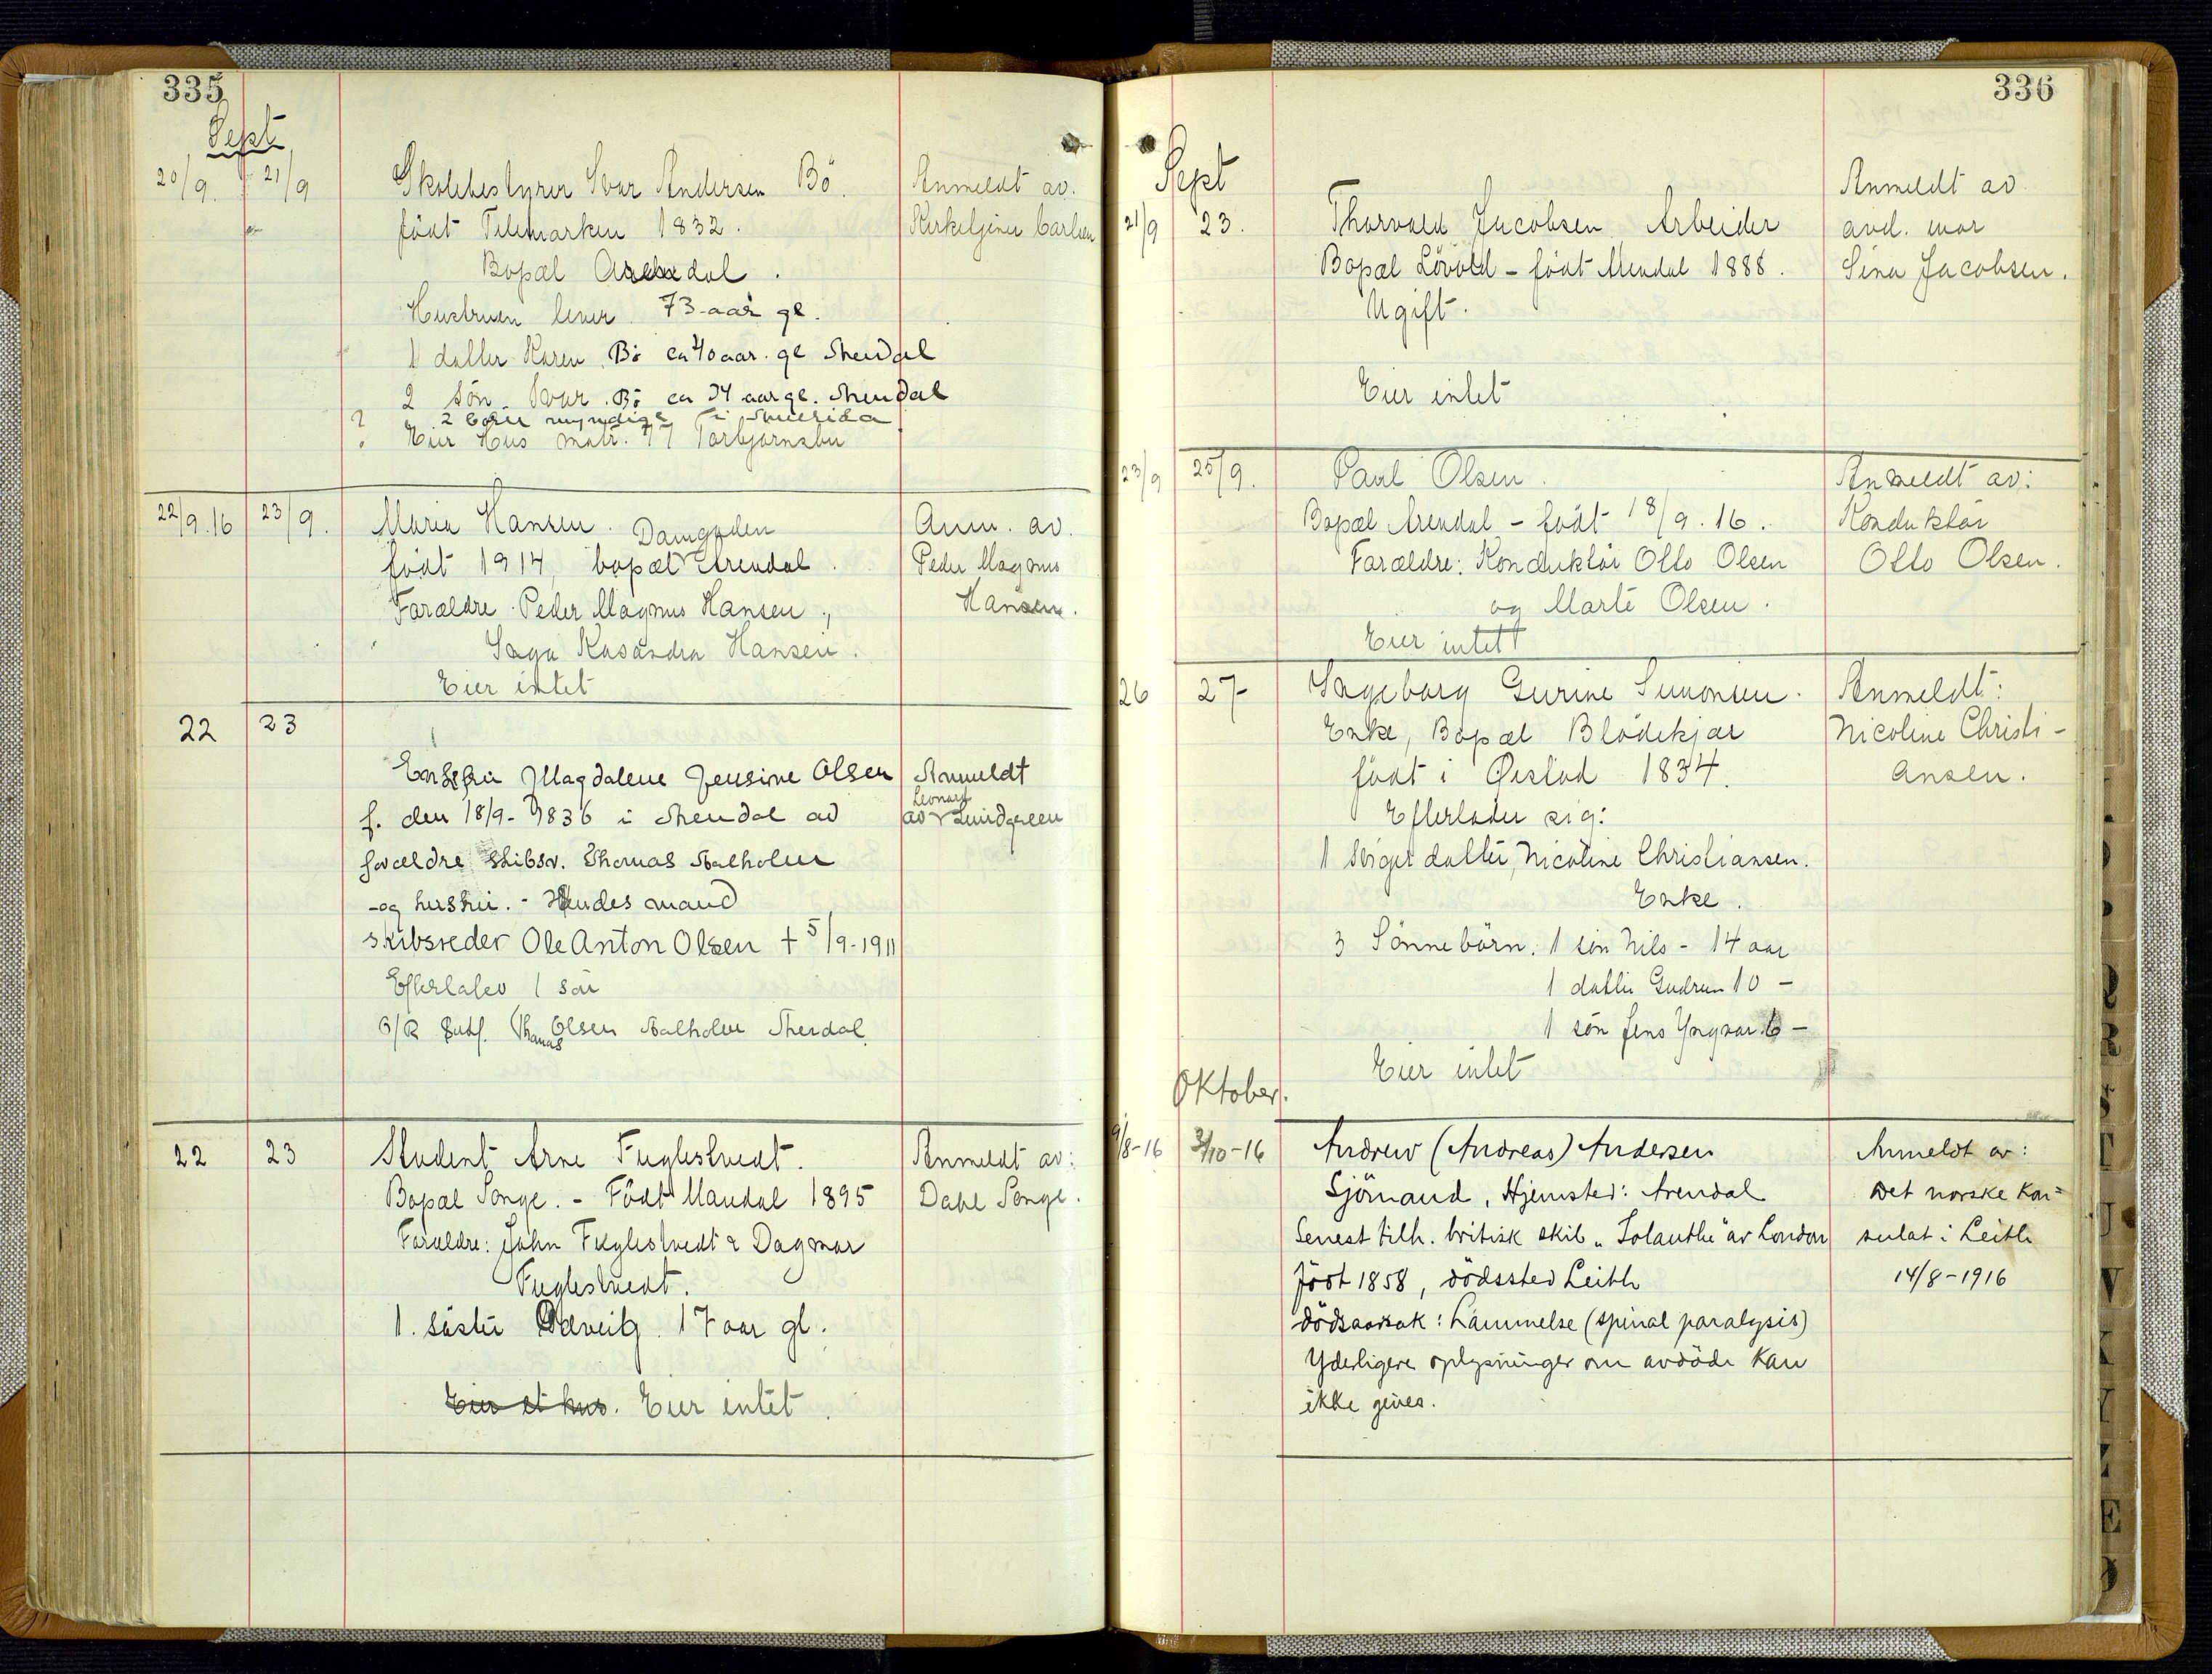 335
Sept
20/9. 21/9 Skolebestyrer Ivar Andersen Bö. Anmeldt av.
födt Telemarken 1832. Kirketjener Carlsen
Bopæl Arendal.
Hustruen lever 73 aar gl.
1 datter Karen Bö ca 40 aar. gl Arendal
2 sön Ivar Bö ca 34 aar gl. Arendal
? 2 börn myndige i Amerika
Eier Hus matr. 77 Torbjørnsbu
22/9.16 23/9. Maria Hansen. Anm. av.
Damgaden
födt 1914, bopæl Arendal. Peder Magnus
Forældre Peder Magnus Hansen, Hansen.
Kasandra Hansen.
Eier intet
22 23
Enkefru Magdalene Jensine Olsen Anmeldt
f. den 18/9-1836 i Arendal av av Leonard Lundgreen
forældre skibsr. Thomas Aalholm
og hustru. - Hendes mand
skibsreder Ole Anton Olsen † 5/9-1911
Efterlater 1 sön
Thomas Olsen Aalholm Arendal.
22 23 Student Arne Fuglestvedt. Anmeldt av:
Bopæl Songe. - Födt Mandal 1895 Dahl Songe.
Forældre: John Fuglestvedt & Dagmar
Fuglestvedt.
1. söster 17 aar gl.
Eier et hus. Eier intet.
336
Sept
21/9 23. Thorvald Jacobsen Arbeider Anmeldt av
avd. mor
Bopæl Lövold - födt Arendal 1888. Sina Jacobsen.
Ugift.
Eier intet
23/9 25/9. Paul Olsen. Anmeldt av:
Bopæl Arendal - födt 18/9.16. Konduktör
Forældre: Konduktör Otto Olsen Otto Olsen.
og Marte Olsen.
Eier intet
26 27 Ingeborg Gurine Simonsen. Anmeldt:
Enke, Bopæl Blödekjær Nicoline Christi-
födt i Øiestad 1834. ansen.
Efterlader sig:
1 sviger datter, Nicoline Christiansen.
Enke.
3 Sönnebörn. 1 sön Nils - 14 aar
1 datter Gudrun 10 -
1 sön Jens Yngvar 6 -
Eier intet
Oktober.
9/8-16 3/10-16 Andrew (Andreas) Andersen Anmeldt av:
Sjömand, Hjemsted: Arendal Det norske kon=
Senest tilh. britisk skib „Iolanthe" av London sulat i Leith
Födt 1858, dödssted Leith 14/8-1916
dödsaarsak: Lammelse (spinal paralysis)
Yderligere oplysninger om avdöde kan
ikke gives.